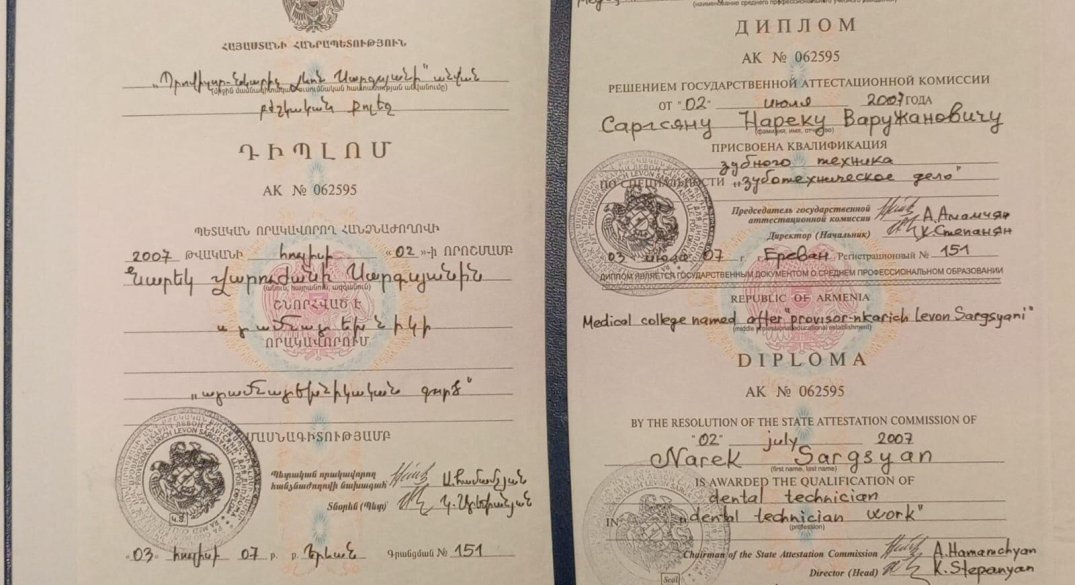 ՀԱՅԱՍՏԱՆԻ ՀԱՆՐԱՊԵՏՈՒԹՅՈՒՆ
„Պրովիզոր-նկարիչ Լևոն Սարգսյանի" անվան
բժշկական քոլեջ
ԴԻՊԼՈՄ
АК № 062595
ՊԵՏԱԿԱՆ ՈՐԱԿԱՎՈՐՈՂ ՀԱՆՁՆԱԺՈՂՈՎԻ
2007 ԹՎԱԿԱՆԻ հուլիսի «02»-ի ՈՐՈՇՄԱՄԲ
Նարեկ Վարուժանի Սարգսյանին
(անուն, հայրանուն, ազգանուն)
ՇՆՈՐՀՎԱԾ Է
ատամնատեխնիկի
ՈՐԱԿԱՎՈՐՈՒՄ
„ատամնատեխնիկական գործ"
ՄԱՍՆԱԳԻՏՈՒԹՅԱՄԲ
Պետական որակավորող
հանձնաժողովի նախագահ Ա. Համամչյան
Տնօրեն (Պետ) Կ. Ստեփանյան
«03» հուլիսի 07 թ. ք. Երևան Գրանցման № 151
(наименование среднего профессионального учебного заведения)
ДИПЛОМ
АК № 062595
РЕШЕНИЕМ ГОСУДАРСТВЕННОЙ АТТЕСТАЦИОННОЙ КОМИССИИ
ОТ "02" июля 2007 ГОДА
Саргсяну Нареку Варужановичу
(фамилия, имя, отчество)
ПРИСВОЕНА КВАЛИФИКАЦИЯ
зубного техника
ПО СПЕЦИАЛЬНОСТИ „зуботехническое дело"
Председатель государственной
аттестационной комиссии А. Амамчян
Директор (Начальник) К. Степанян
03 июля 07 г. Ереван Регистрационный № 151
ДИПЛОМ ЯВЛЯЕТСЯ ГОСУДАРСТВЕННЫМ ДОКУМЕНТОМ О СРЕДНЕМ ПРОФЕССИОНАЛЬНОМ ОБРАЗОВАНИИ
REPUBLIC OF ARMENIA
Medical college named after "provisor-nkarich Levon Sargsyani"
(middle professional educational establishment)
DIPLOMA
АК № 062595
BY THE RESOLUTION OF THE STATE ATTESTATION COMMISSION OF
"02" july 2007
Narek Sargsyan
(first name, last name)
IS AWARDED THE QUALIFICATION OF
dental technician
IN „dental technician work"
(profession)
Chairman of the State Attestation Commission A. Hamamchyan
Director (Head) K. Stepanyan
Seal